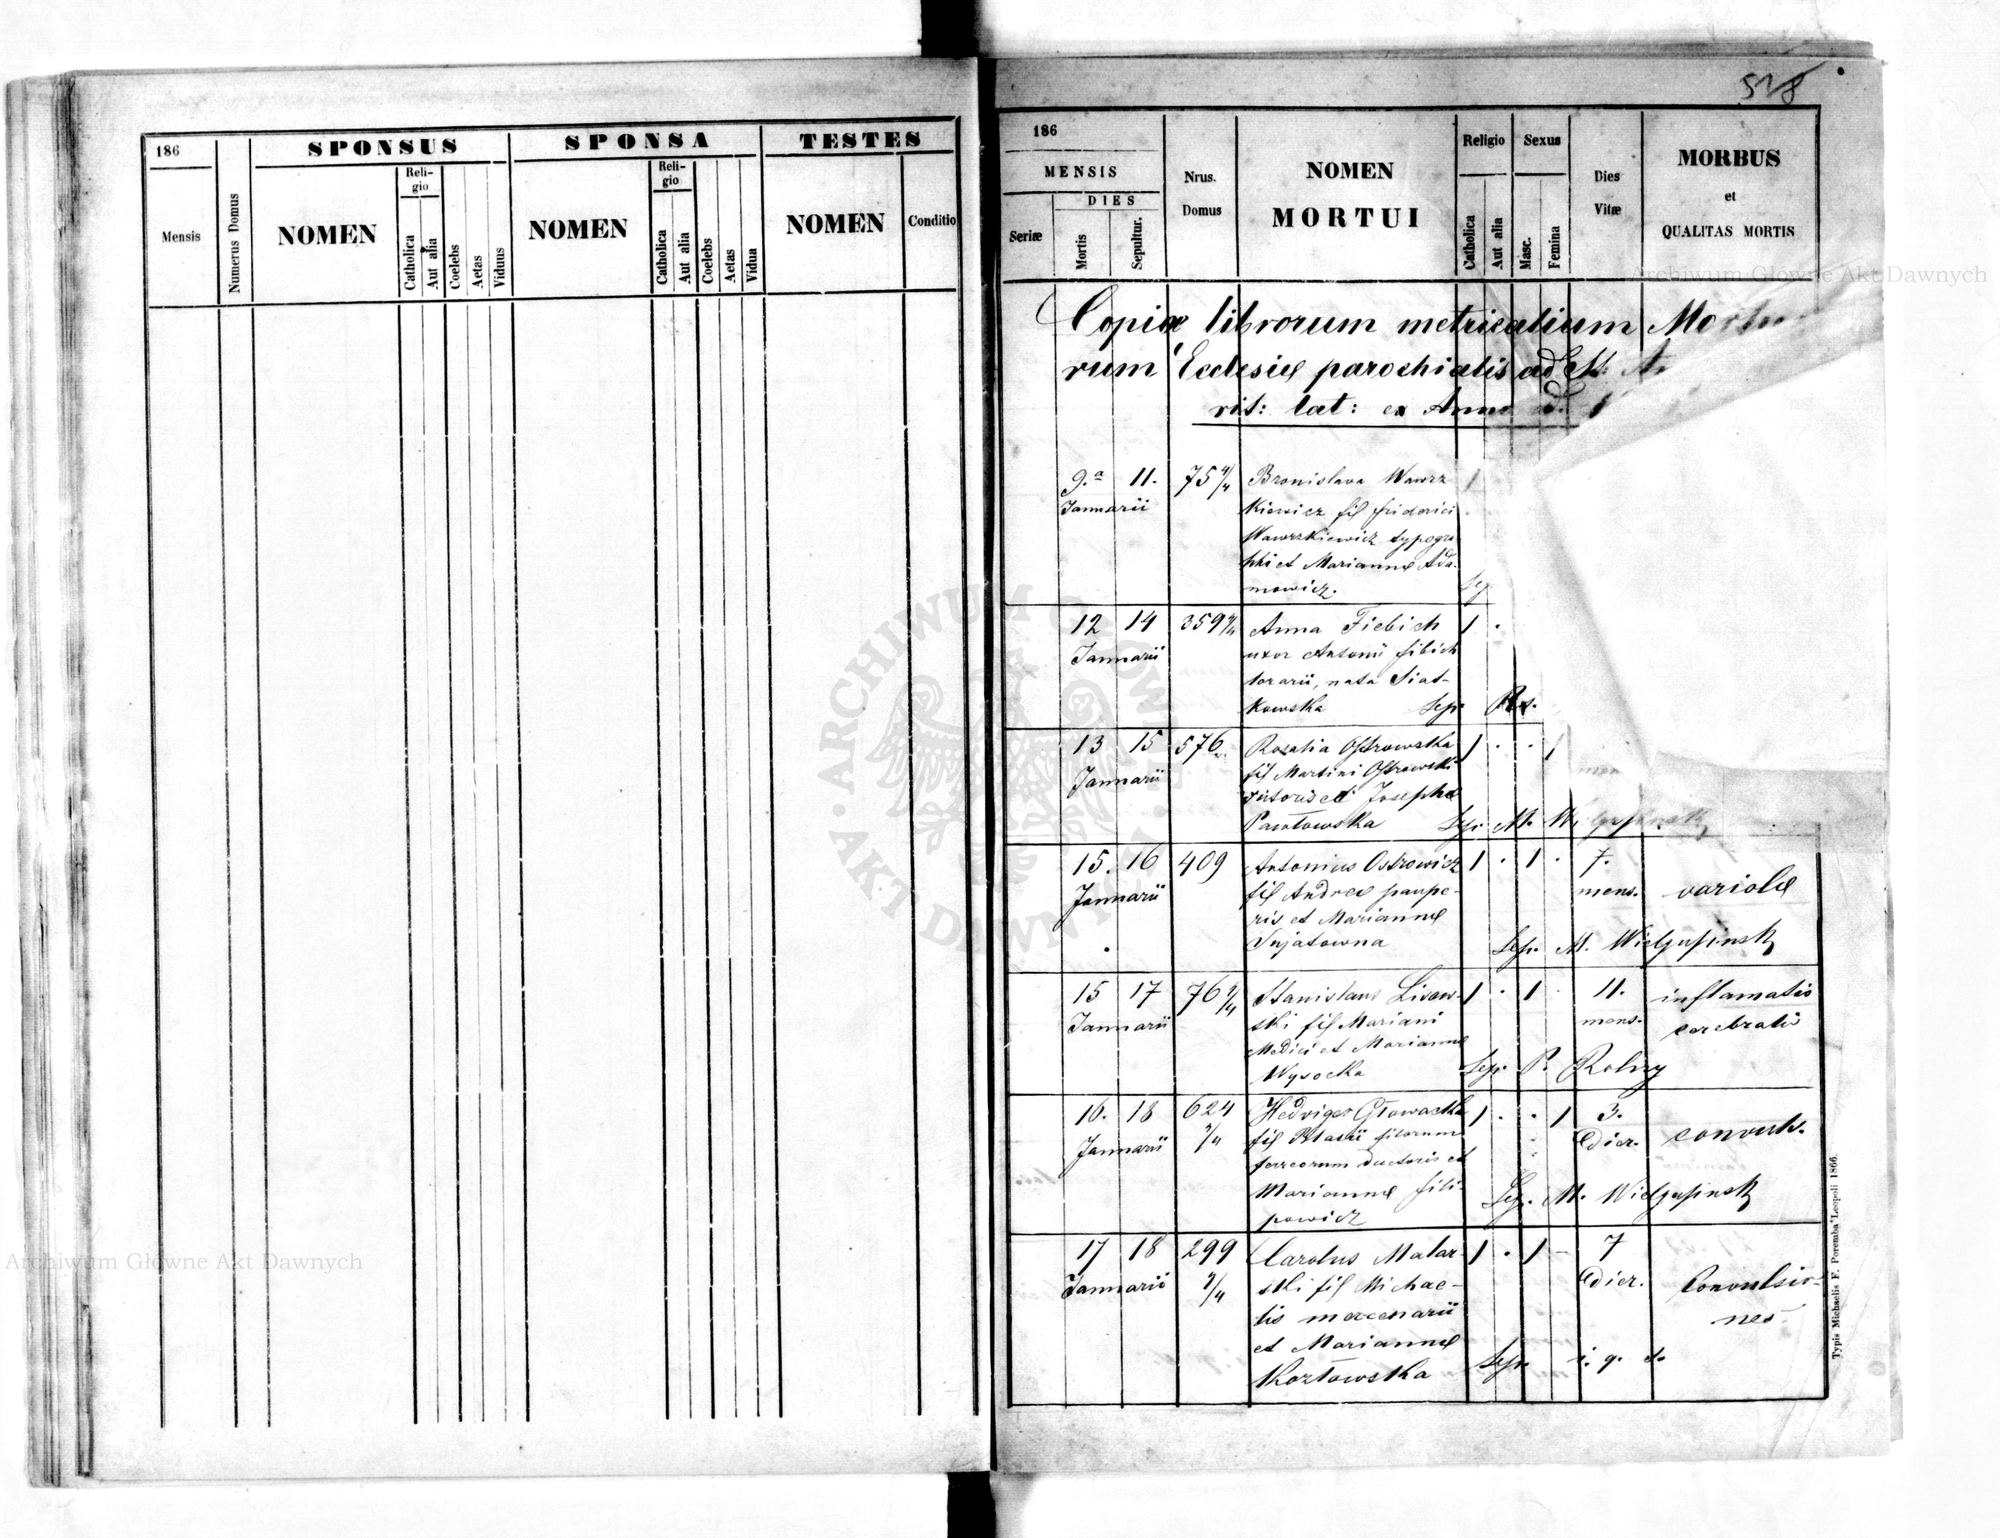 186
SPONSUS
SPONSA
TESTES
Mensis
Numerus Domus
NOMEN
Religio
Catholica
Aut alia
Coelebs
Aetas
Viduus
NOMEN
Religio
Catholica
Aut alia
Coelebs
Aetas
Vidua
NOMEN
Conditio
518
186
MENSIS
Seriæ
DIES
Mortis
Sepultur.
Nrus.
Domus
NOMEN
MORTUI
Religio
Catholica
Aut alia
Sexus
Masc.
Femina
Dies
Vitæ
MORBUS
et
QUALITAS MORTIS
Copiæ librorum metricalium Mortuo
rum Ecclesiæ parochialis ad St:
rit: lat: ex Anno
9.a 11. 75 4/4 Bronislava Wawrz
Januarii kiewicz fil friderici
Wawrzkiewicz typogra
phi et Mariannæ Ada-
mowicz. Sep.
12 14 359 4/4 Anna Fiebich 1 .
Januarii uxor Antonii fibich
nata Siat-
kowska Sep.
13 15 576 Rosalia Ostrowska 1 . . 1
Januarii fil Martini Ostrowski
et Josephæ
Pawłowska Sep. M.
15. 16 409 Antonius Ostrowicz 1 . 1 . 7.
Januarii fil Andreæ paupe- mens. variolæ
ris et Mariannæ
Sep. M.
15 17 76 4/4 Stanislaus Lisow- 1 . 1 . 11. inflamatio
Januarii ski fil Mariani mens. cerebralis
Medici et Mariannæ
Wysocka Sep. P. Rolny
16. 18 624 4/4 Hedviges Głowacka 1 . . 1 3.
Januarii fil Blasii filorum dier. convuls.
ferreorum ductoris et
Mariannæ fili-
powicz Sep. M.
17 18 299 4/4 Carolus Malar- 1 . 1 – 7
Januarii ski fil Michae- dier. Convulsio-
lis mercenarii nes.
et Mariannæ
Kozłowska Sep. i. q. s.
Typis Michaelis F. Poremba Leopoli 1866.
Archiwum Główne Akt Dawnych
ARCHIWUM GŁÓWNE AKT DAWNYCH
Archiwum Główne Akt Dawnych